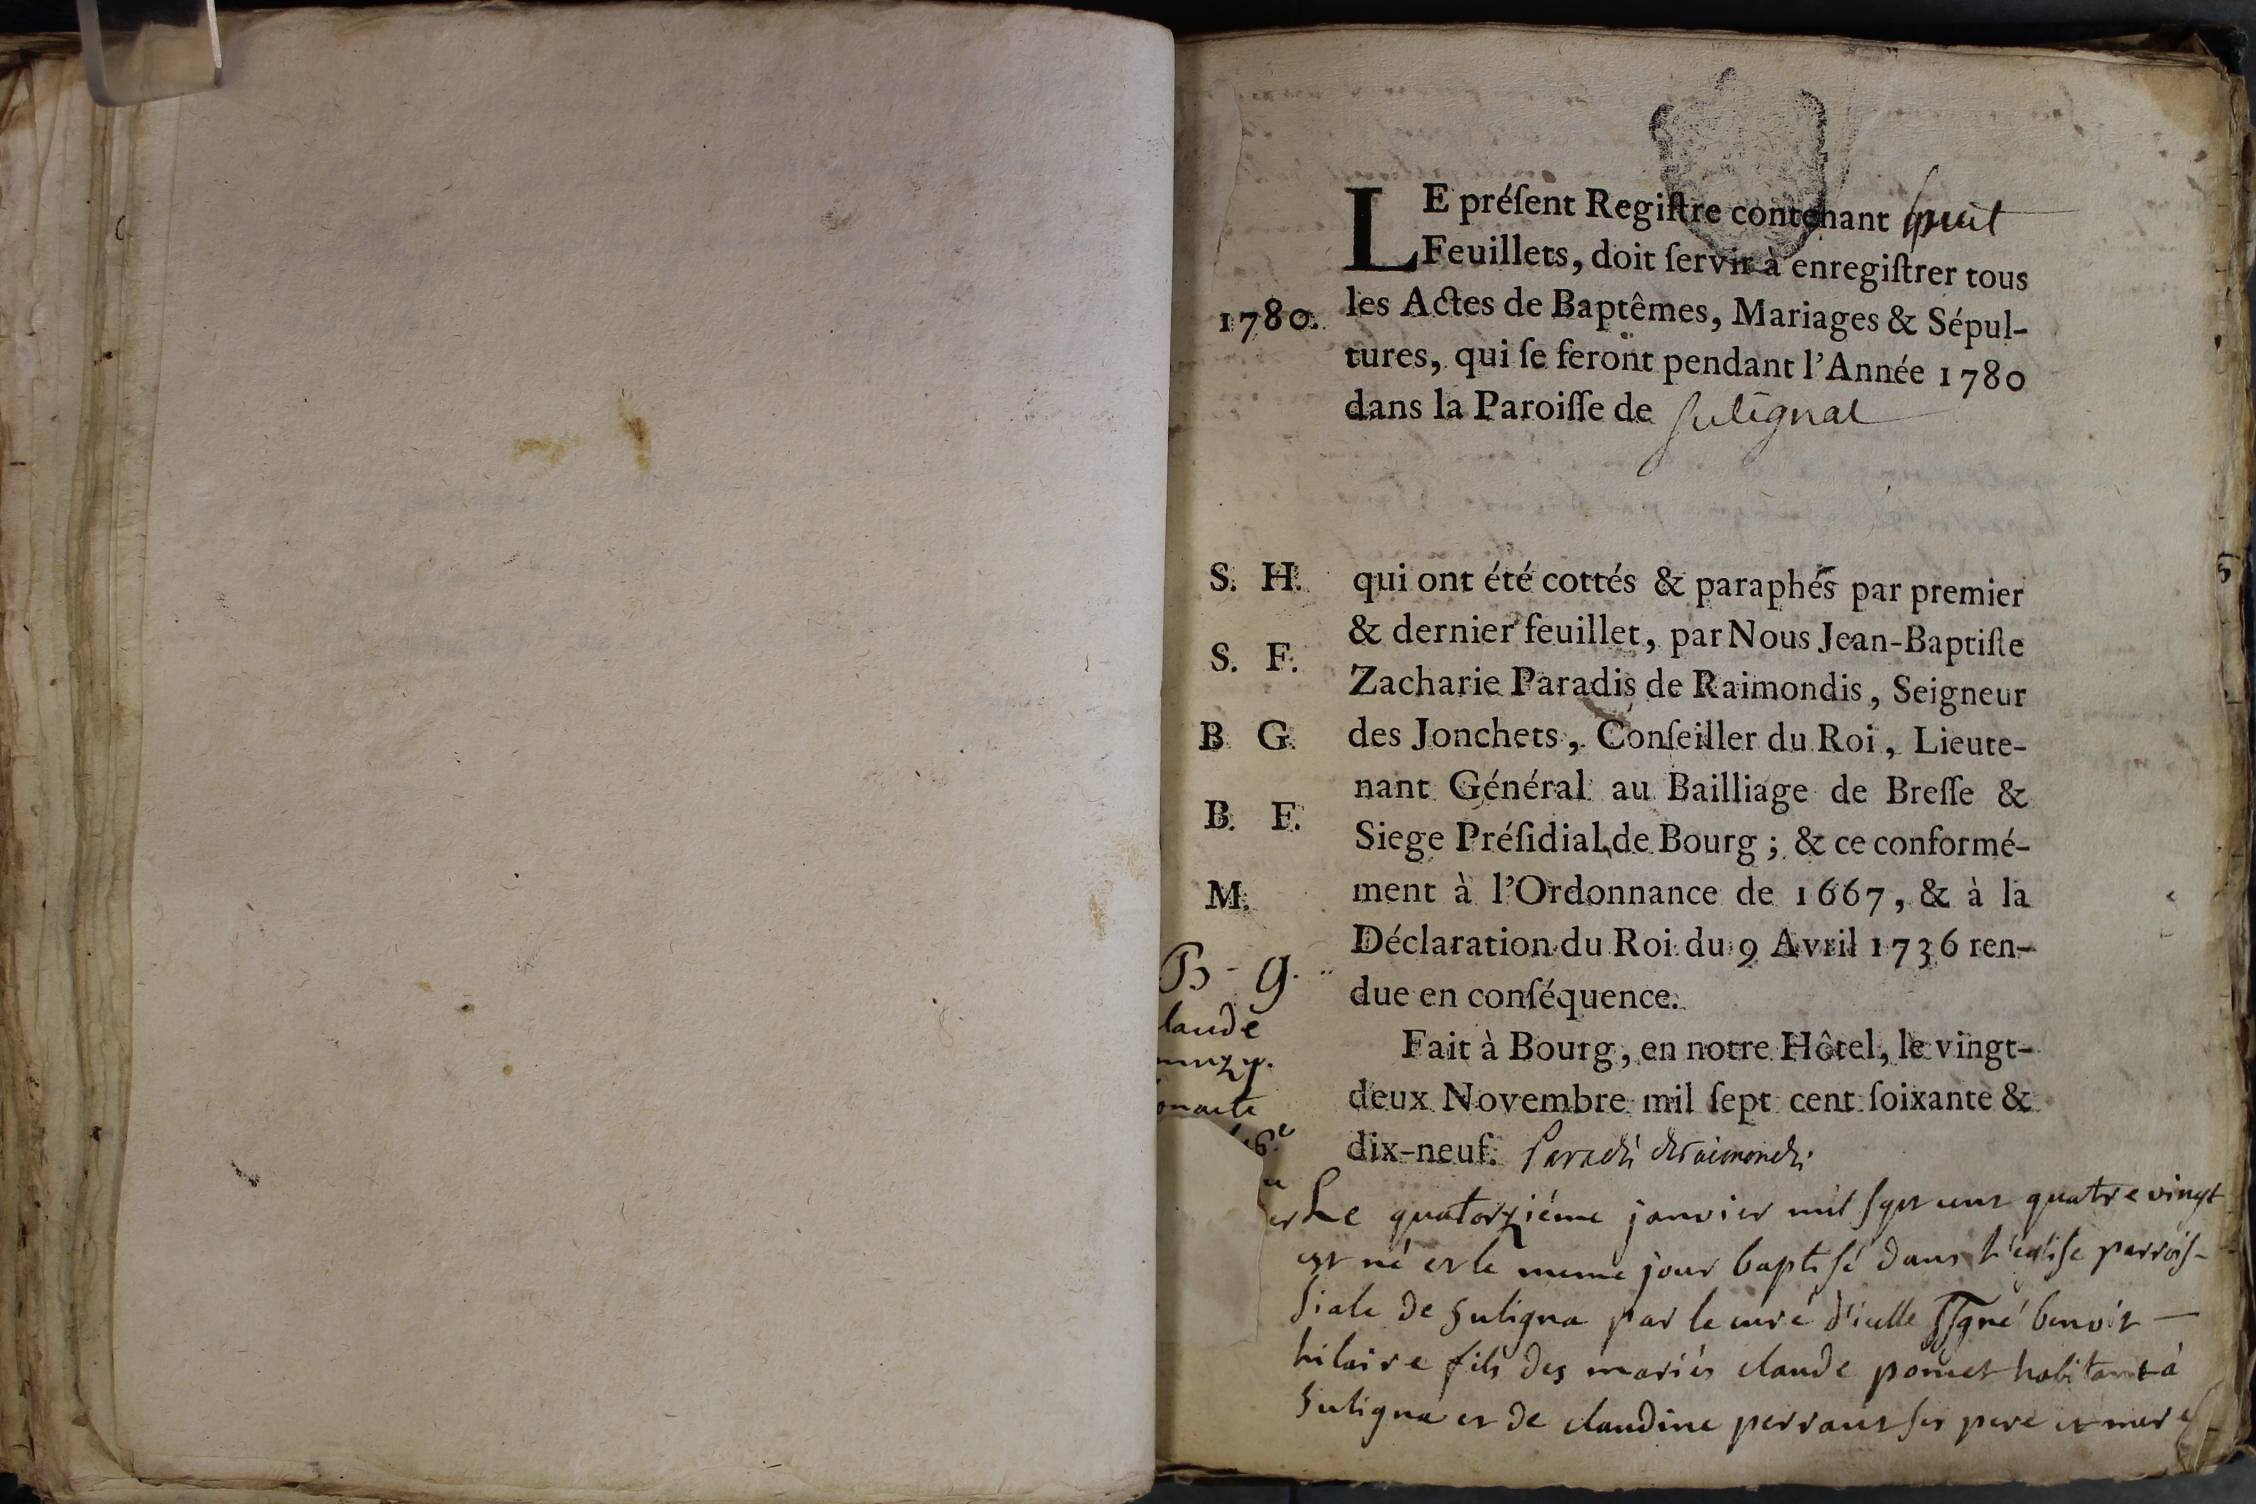 LE préſent Regiſtre contenant huit
Feuillets, doit ſervir à enregiſtrer tous
1780. les Actes de Baptêmes, Mariages & Sépul-
tures, qui ſe feront pendant l'Année 1780
dans la Paroiſſe de Sulignat
S. H. qui ont été cottés & paraphés par premier
& dernier feuillet, par Nous Jean-Baptiſte
S. F.
Zacharie Paradis de Raimondis, Seigneur
B. G. des Jonchets, Conſeiller du Roi, Lieute-
nant Général au Bailliage de Breſſe &
B. F.
Siege Préſidial de Bourg; & ce conformé-
M. ment à l'Ordonnance de 1667, & à la
Déclaration du Roi du 9 Avril 1736 ren-
B - g.
due en conſéquence.
laude
Fait à Bourg, en notre Hôtel, le vingt-
deux Novembre mil ſept cent ſoixante &
dix-neuf. Paradis de Raimondis
Le quatorziéme janvier mil sept cent quatre vingt
est né et le meme jour baptisé dans l'eglise parrois-
siale de Suligna par le curé d'icelle ssgné benoit
hilaire fils des mariés claude pomet habitant à
Suligna et de claudine perraut ses pere et mere